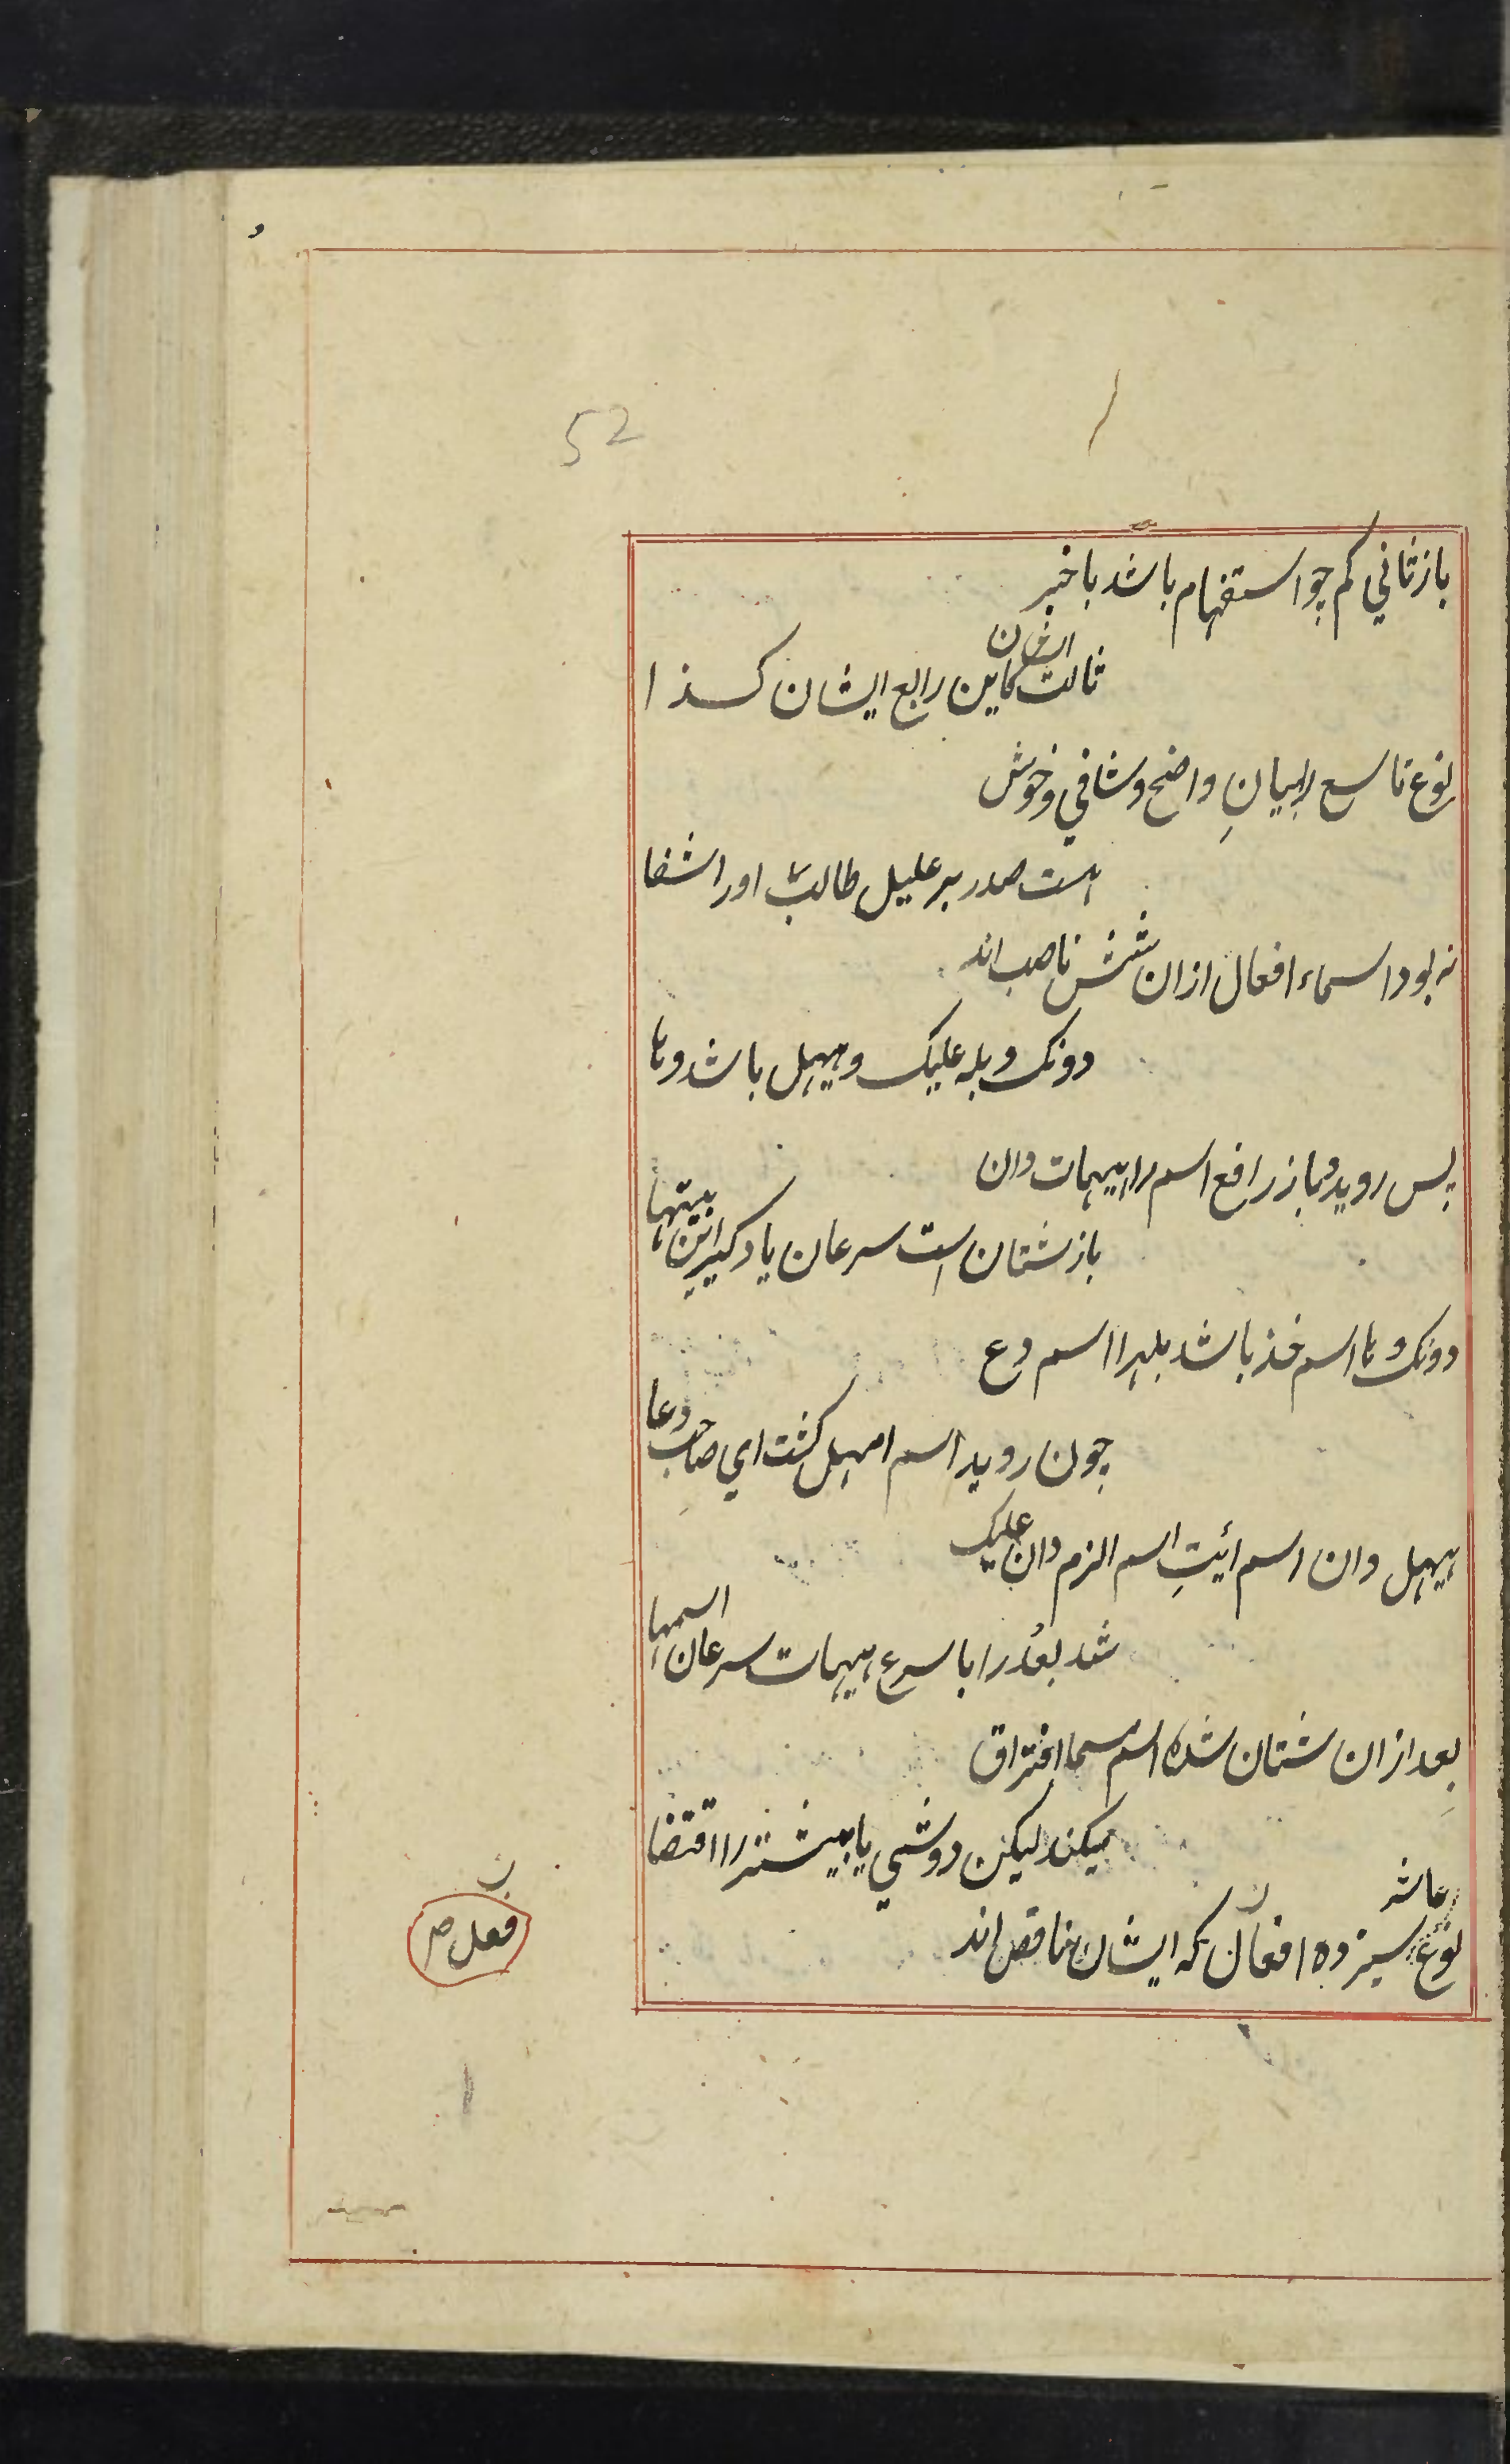 52
باز ثاني كم چو استفهام باشد با خبر
ثالث ايشان كاين رابع ايشان كسذا
نوع تاسع را بيانِ واضح و شافي و خوش
هست صدر بر عليل طالب او را شفا
نه بود اسماء افعال ازان شش ناصب اند
دونك و بله عليك و حيهل باشد و ها
پس رويد و باز رافع اسم را هيهات دان
باز شتان است سرعان ياد گير اين بيتها
دونك و ها اسم خذ باشد بله را اسم دع
چون رويد اسم امهل گشت اي صاحب دعا
حيهل دان اسم ائيتِ اسم الزم دان عليك
شد بعُد را با سرع هيهات سرعان اسمها
بعد ازان شتان شده اسم مسما افتراق
ميكند ليكن دو شي يا بيشتر را اقتضا
نوع عاشر سيزده افعال كه ايشان ناقص اند
فعل صر